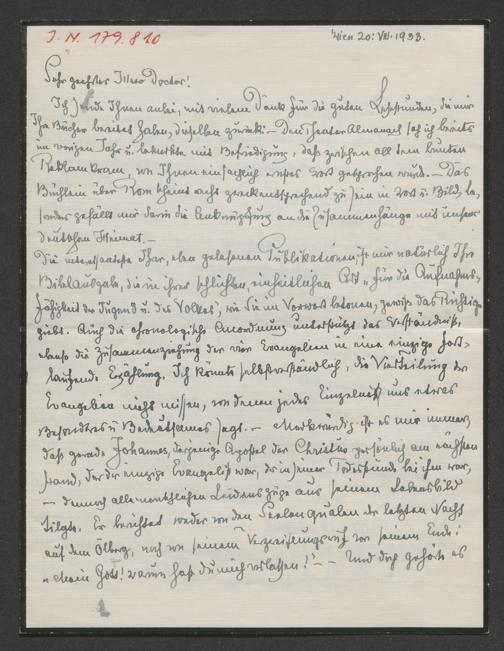 I. N. 179.810
Wien 20. VIII. 1933.
Sehr geehrter Herr Doctor!
Ich sende Ihnen anbei, mit vielem Dank für die guten Lesestunden, die mir
Ihre Bücher bereitet haben, dieselben zurück. – Den Theateralmanach sah ich bereits
im vorigen Jahr u. bemerkte mit Befriedigung, daß zwischen all dem bunten
Reklamkram, von Ihnen ein ernstes Wort gesprochen wird. – Das
Büchlein über Rom scheint recht zweckentsprechend zu sein in Wort u. Bild, be-
sonders gefällt mir darin die Anknüpfung an die Zusammenhänge mit unserer
deutschen Heimat. –
Die interessanteste Ihrer, eben gelesenen Publikationen ist mir natürlich Ihre
Bibelausgabe, die in ihrer schlichten, einheitlichen Art u. für die Aufnahms-
fähigkeit der Jugend u. des Volkes, wie Sie im Vorwort betonen, gewiss das Richtige
giebt. Auch die chronologische Anordnung unterstützt das Verständniß,
ebenso die Zusammenziehung der vier Evangelien in eine einzige fort-
laufende Erzählung. Ich könnte selbstverständlich, die Vierteilung der
Evangelien nicht missen, von denen jedes Einzelne uns etwas
Besonderes u. Bedeutsames sagt. – Merkwürdig ist es mir immer,
daß gerade Johannes, derjenige Apostel der Christus persönlich am nächsten
stand, der der einzige Evangelist war, der in seiner Todesstunde bei ihm war,
– dennoch alle menschlichen Leidenszüge aus seinem Lebensbild
tilgte. Er berichtet weder von den Seelenqualen der letzten Nacht
auf dem Ölberg, noch von seinem Verzweiflungsruf vor seinem Ende:
„Mein Gott! warum hast du mich verlassen!" – – Und doch gehört es